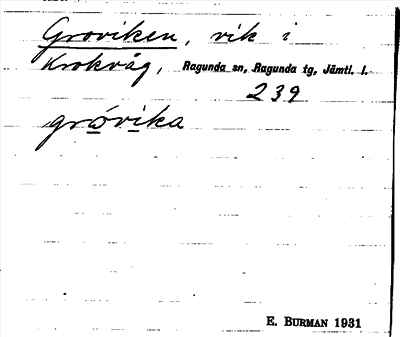 Groviken, vik i
Krokvåg, Ragunda sn, Ragunda tg, Jämtl. l.
239
grövika
E. BURMAN 1931